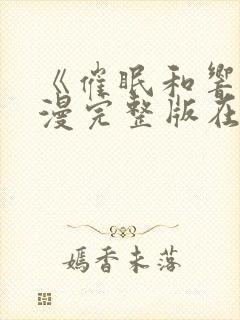 《催眠和響
漫完整版在
媽香未落